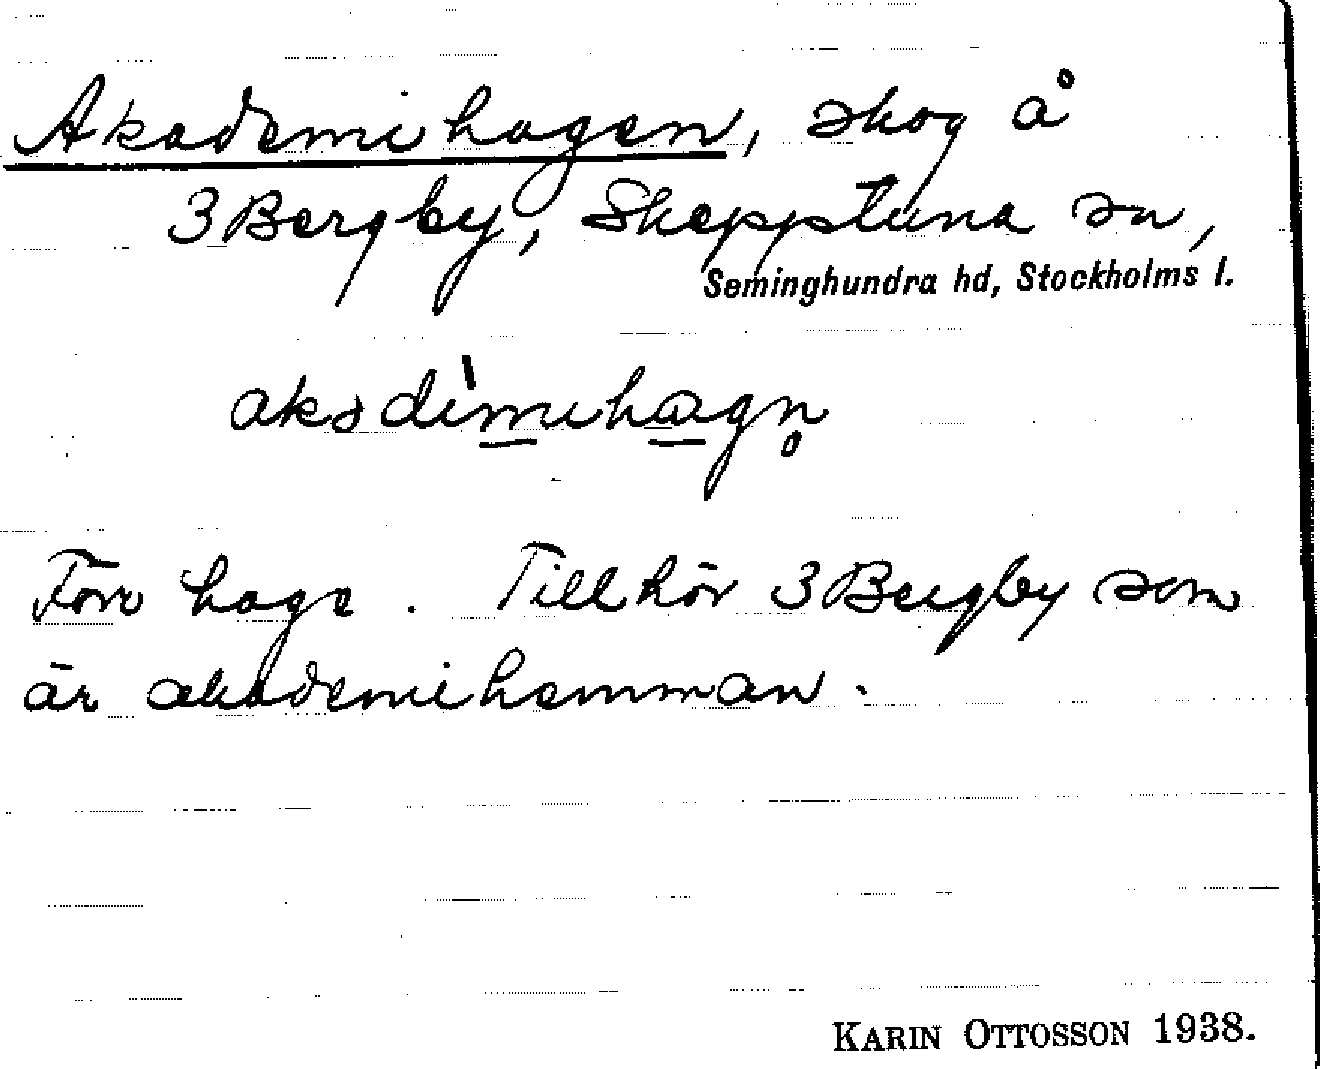 Akademihagen, skog å
3 Bergby, Skepptuna sn,
Seminghundra hd, Stockholms l.
akadèmihagn̥
Förr hage. Tillhör 3 Bergby som
är akademihemman.
KARIN OTTOSSON 1938.